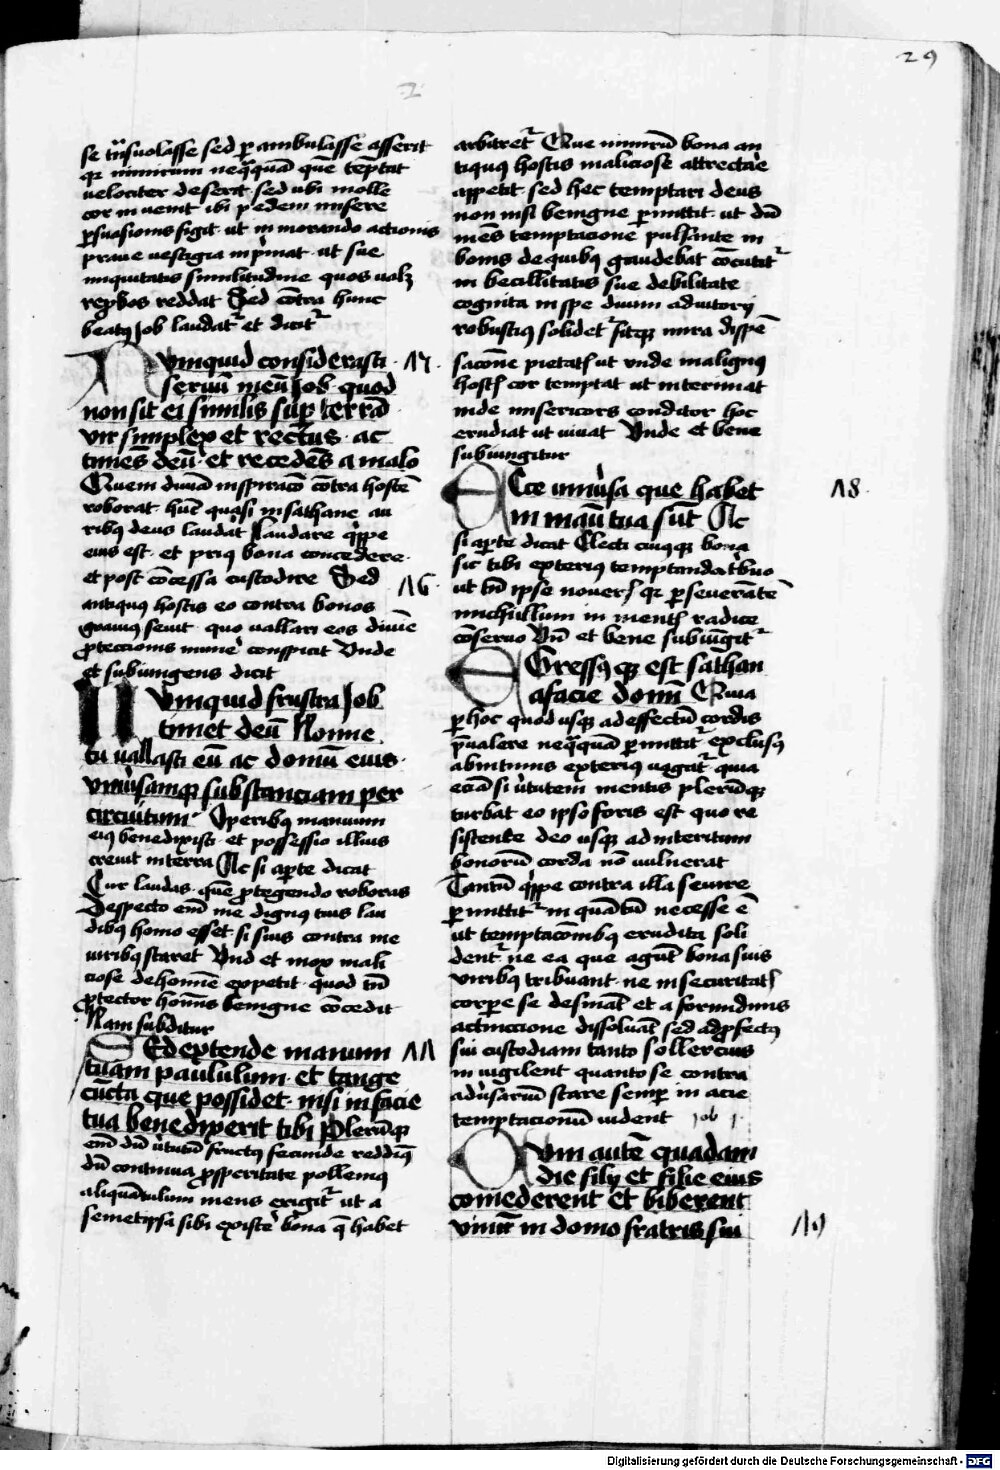 29
se transuolasse sed ꝑambulasse asserit
qꝛ nimirum neq̄quā quē tēptat
velociter deserit sed ubi molle
cor inuenit ibi pedem misere
ꝑsuasionis figit · ut inmorando actionis
praue uestigia inp̍mat · ut sue
iniquitatis similitudine quos ualꝫ
reprobos reddat Sed cōtra hunc
beatꝰ Job laudatᷣ et dicitᷣ
Numquid considerasti · 15 ·
seruū meū Job quod
non sit ei similis suꝑ terrā
vir simplex et rectus · ac
timēs deū · et recedēs a malo
Quem diuiā inspiracō cōtra hostē
roborat · hūc quasi in sathane au
ribꝰ deus laudat Laudare q̍ppe
eius est · et priꝰ bona concedere ·
et post cōcessa custodire Sed · 16 ·
antiquꝰ hostis eo contra bonos
grauiꝰ seuit · quo uallari eos diuīe
ꝓtectionis munē conspicit Unde
et subiungens dicit
Numquid frustra Job
timet deū Nonne
tu uallasti eū ac domū eius ·
vniu̍samqꝫ substanciam per
circuitum · Operibꝰ manuum
eiꝰ benedixisti · et possessio illius
creuit in terra Ac si aꝑte dicat
Cur laudas · quē ꝓtegendo roboras
Despecto eni me dignꝰ tuis lau
dibꝰ homo esset si suis contra me
uiribꝰ staret Vnd et mox mali
ciose de homīe expetit · quod tn̄
ꝓtector homīs benigne cōcedit
Nam subditur
Sed extende manum 17
tuam paululum · et tange
cūcta que possidet · nisi in facie
tua benedixerit tibi Plerūqꝫ
eni dū u̍tutū fructꝰ fecunde reddiꝰ
dū continua ꝓsperitate pollemꝰ
aliquātulum mens erigitᷣ ut a
semetipsa sibi existē bona q̄ habet
arbitretᷣ Que nimirū bona an
tiquus hostis maliciose attrectare
appetit · sed hec temptari deus
non nisi benigne ꝑmittit · ut dū
mēs temptacione pulsante in
bonis de quibꝰ gaudebat cōcutitᷣ
inbecillitatis sue debilitate
cognita in spe diuini adiutorij
robustiꝰ solidetᷣ fitqꝫ mira dispē
sacōne pietatꝭ ut vnde malignꝰ
hostꝭ cor temptat ut interimat
inde misericors conditor hoc
erudiat ut viuat Vnde et bene
subiungitur
Ecce vniu̍sa que habet 18 ·
in manū tua sūt Ac
si aꝑte dicat Electi cuiusqꝫ bona
sic tibi exterius temptanda tribuo
ut tn̄ ipse nouerꝭ qꝛ ꝑseuerātē
michi illum in mentꝭ radice
cōseruo Vn̄ et bene subiūgitᷣ
Egressusqꝫ est sathan
a facie domī Quia
ꝑ hoc quod usqꝫ ad effectū cordis
p̄ualere neq̄quā ꝑmittitᷣ exclusꝰ
ab intimis exterius vagatᷣ quia
eciā si u̍tutem mentis plerūqꝫ
turbat eo ipso foris est quo re
sistente deo usqꝫ ad interitum
bonorū corda nō vulnerat
Tantū q̍ppe contra illa seuire
ꝑmittitᷣ in quātū necesse ē
ut temptacōnibꝰ erudita soli
dentᷣ ne ea que agūt bona suis
viribꝰ tribuant · ne in securitatꝭ
corꝑe se desināt et a formidinis
actinccione dissoluāt sed ad ꝓfectꝰ
sui custodiam tanto sollercius
inuigilent quanto se contra
adu̍sariū stare semꝑ in acie
temptacionū vident Job j ·
Cum autē quadam
die filij et filie eius
comederent et biberent
vinū in domo fratris sui 19